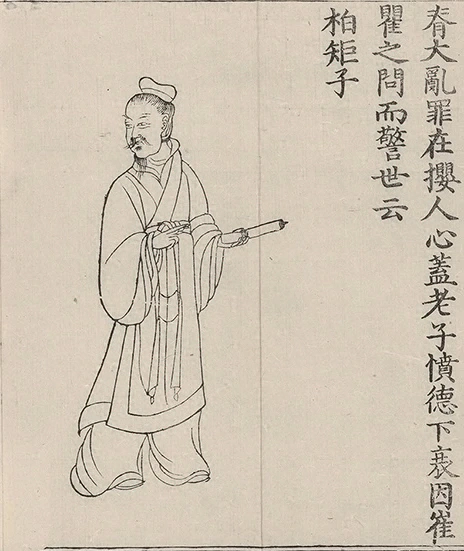 脊大亂罪在攖人心蓋老子憤德下衰因崔
瞿之問而警世云
柏矩子